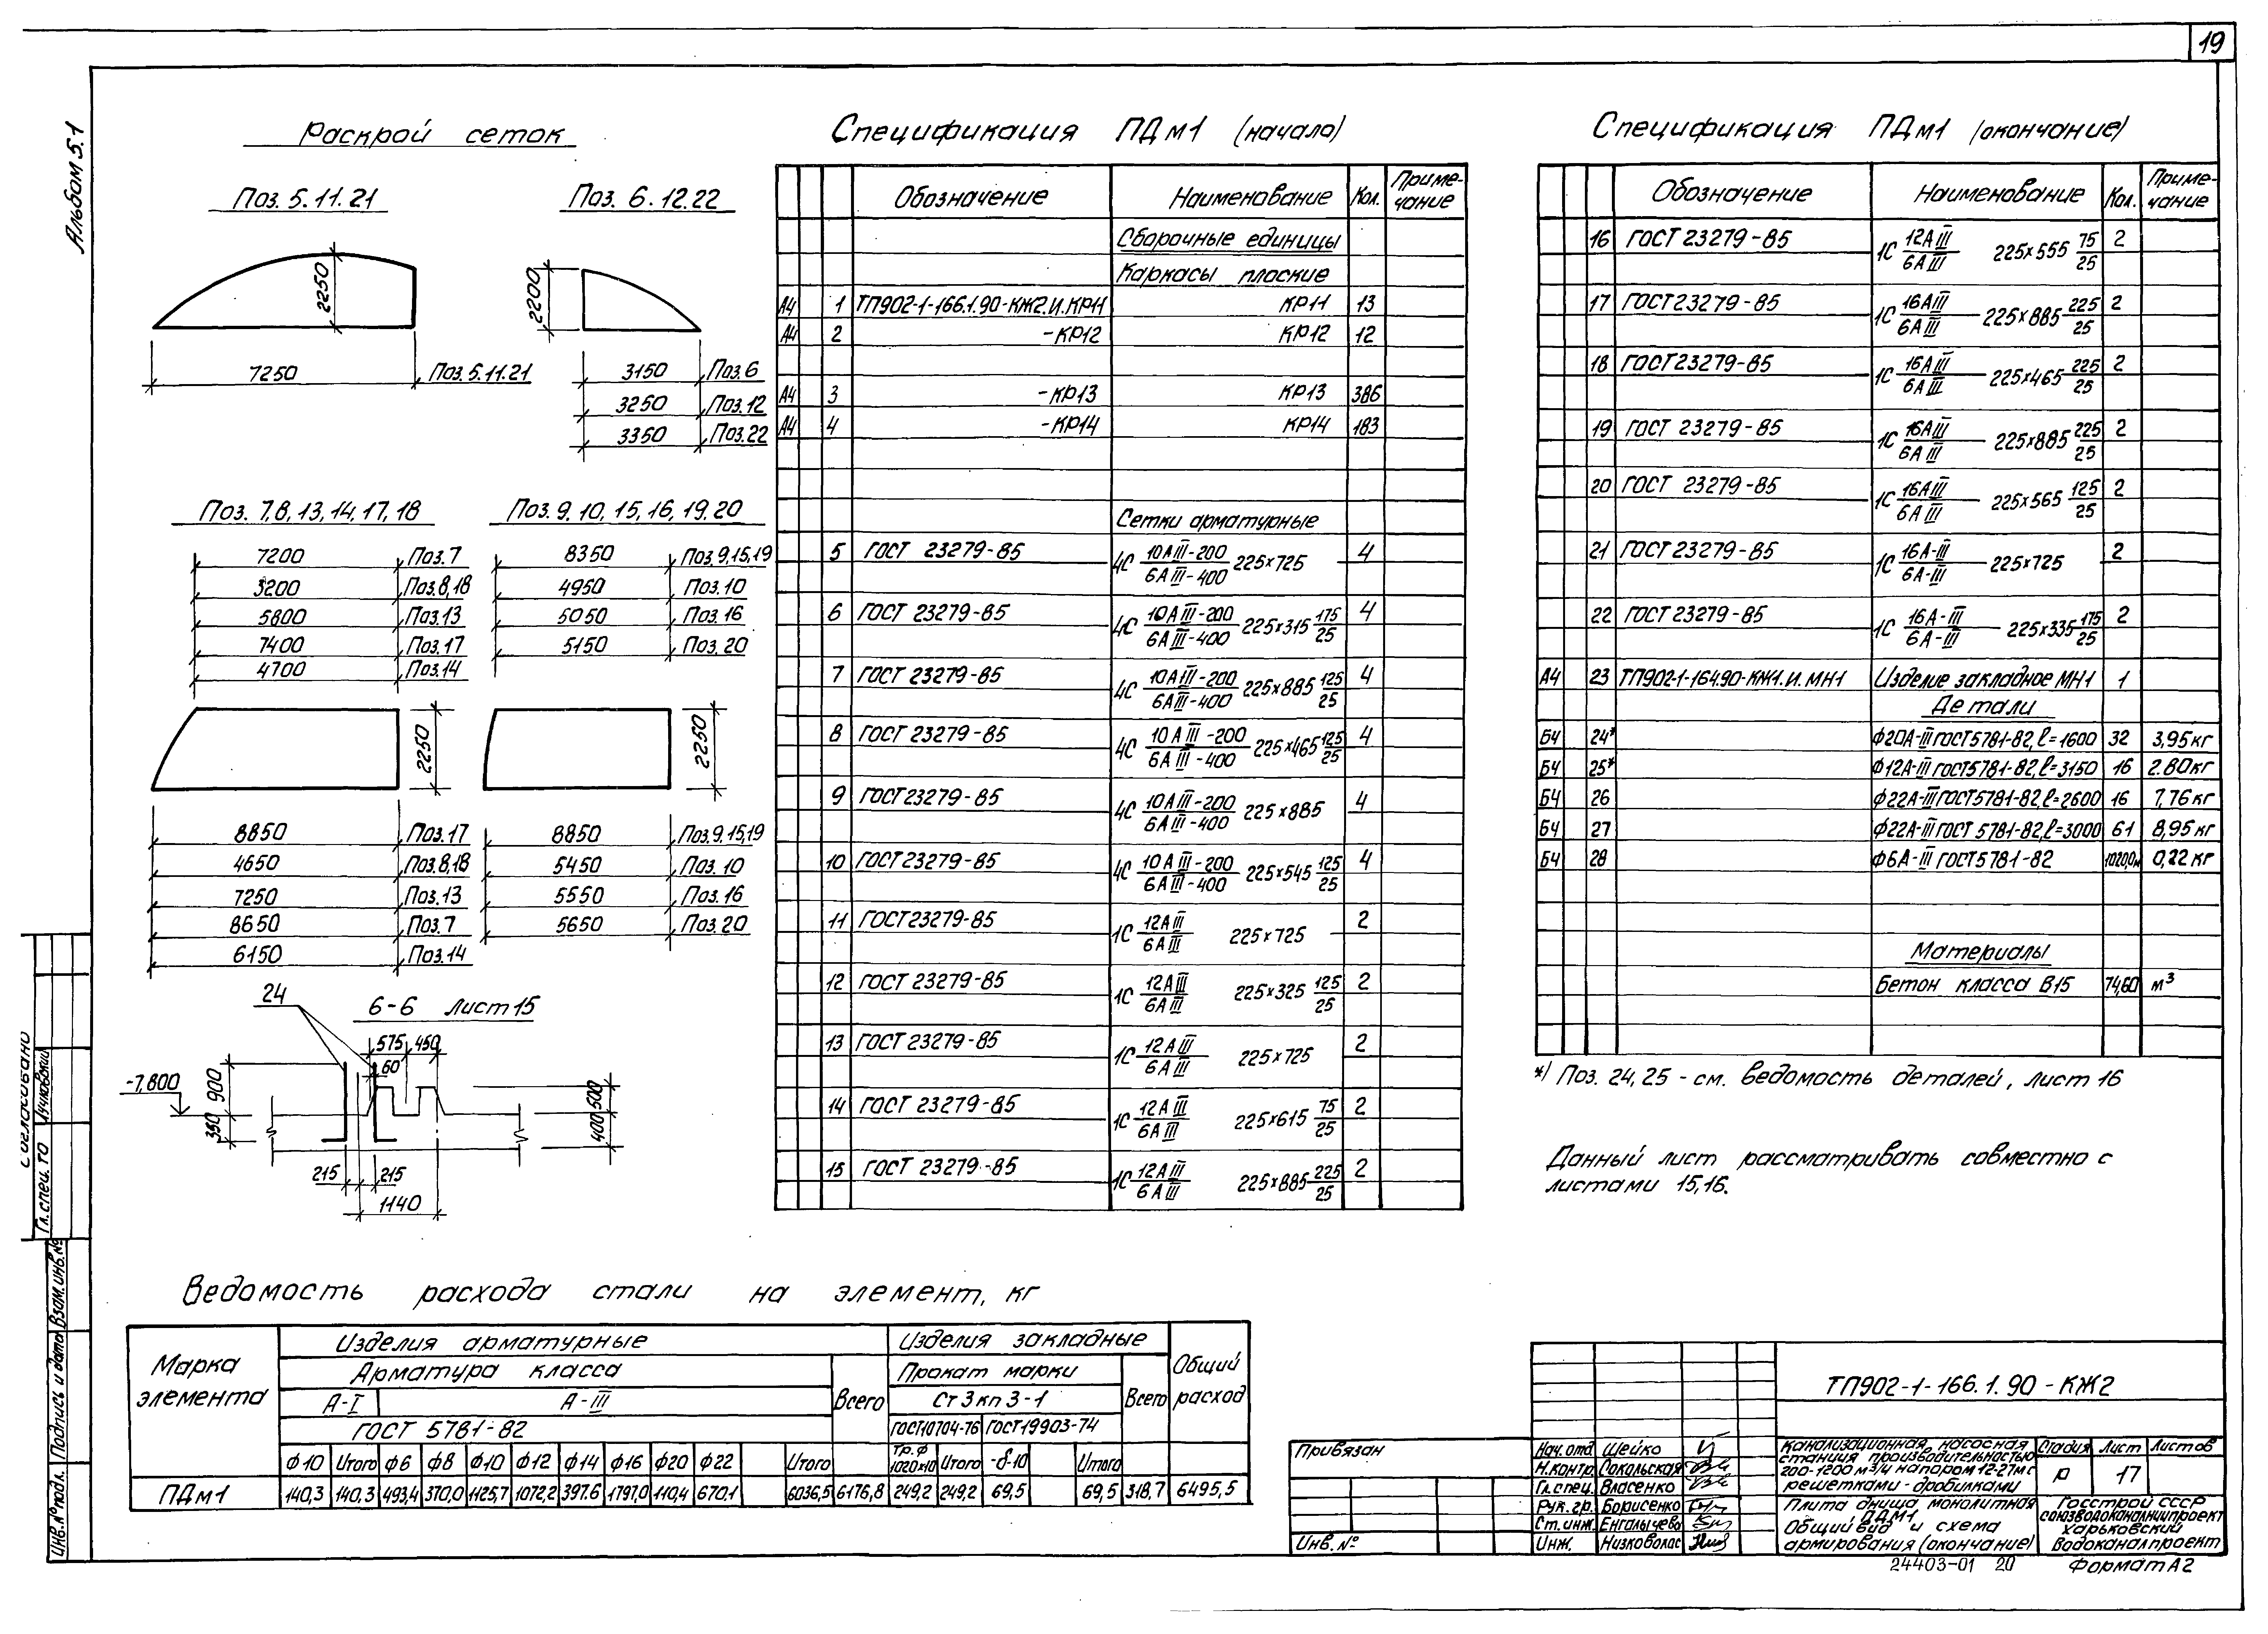 19
Альбом 5.1
Раскрой сеток
Поз. 5.11.21
2250
7250
Поз. 5.11.21
Поз. 6.12.22
2200
3150 Поз.6
3250 Поз.12
3350 Поз.22
Поз. 7,8,13,14,17,18
7200 Поз.7
3200 Поз.8,18
5800 Поз.13
7400 Поз.17
4700 Поз.14
2250
8850 Поз.17
4650 Поз.8,18
7250 Поз.13
8650 Поз.7
6150 Поз.14
Поз. 9.10,15,16,19,20
8350 Поз.9,15,19
4950 Поз.10
5050 Поз.16
5150 Поз.20
2250
8850 Поз.9.15,19
5450 Поз.10
5550 Поз.16
5650 Поз.20
24
6-6 Лист 15
575 450
60
-7,800
900
350
500
400
215 215
1140
Спецификация ПДм1 (начало)
Обозначение Наименование Кол. Приме-
чание
Сборочные единицы
Каркасы плоские
А4 1 ТП902-1-166.1.90-КЖ2.И.КР11 КР11 13
А4 2 -КР12 КР12 12
А4 3 -КР13 КР13 386
А4 4 -КР14 КР14 183
Сетки арматурные
5 ГОСТ 23279-85 4С 10АIII-200/6АIII-400 225×725 4
6 ГОСТ 23279-85 4С 10АIII-200/6АIII-400 225×315 175/25 4
7 ГОСТ 23279-85 4С 10АIII-200/6АIII-400 225×885 125/25 4
8 ГОСТ 23279-85 4С 10АIII-200/6АIII-400 225×465 125/25 4
9 ГОСТ 23279-85 4С 10АIII-200/6АIII-400 225×885 4
10 ГОСТ 23279-85 4С 10АIII-200/6АIII-400 225×545 125/25 4
11 ГОСТ 23279-85 1С 12АIII/6АIII 225×725 2
12 ГОСТ 23279-85 1С 12АIII/6АIII 225×325 125/25 2
13 ГОСТ 23279-85 1С 12АIII/6АIII 225×725 2
14 ГОСТ 23279-85 1С 12АIII/6АIII 225×615 75/25 2
15 ГОСТ 23279-85 1С 12АIII/6АIII 225×885 225/25 2
Спецификация ПДм1 (окончание)
Обозначение Наименование Кол. Приме-
чание
16 ГОСТ 23279-85 1С 12АIII/6АIII 225×555 75/25 2
17 ГОСТ 23279-85 1С 16АIII/6АIII 225×885 225/25 2
18 ГОСТ 23279-85 1С 16АIII/6АIII 225×465 225/25 2
19 ГОСТ 23279-85 1С 16АIII/6АIII 225×885 225/25 2
20 ГОСТ 23279-85 1С 16АIII/6АIII 225×565 125/25 2
21 ГОСТ 23279-85 1С 16А-III/6А-III 225×725 2
22 ГОСТ 23279-85 1С 16А-III/6А-III 225×335 175/25 2
А4 23 ТП902-1-164.90-КЖ1.И.МН1 Изделие закладное МН1 1
Детали
Б4 24* ф20А-III ГОСТ 5781-82, ℓ=1600 32 3,95кг
Б4 25* ф12А-III ГОСТ 5781-82, ℓ=3150 16 2.80кг
Б4 26 ф22А-III ГОСТ 5781-82, ℓ=2600 16 7,76кг
Б4 27 ф22А-III ГОСТ 5781-82, ℓ=3000 61 8,95кг
Б4 28 ф6А-III ГОСТ 5781-82 1020,0м 0,22кг
Материалы
Бетон класса В15 74,60 м³
*/ Поз. 24,25 - см. ведомость деталей, лист 16
Данный лист рассматривать совместно с
листами 15,16.
Ведомость расхода стали на элемент, кг
Марка элемента Изделия арматурные Изделия закладные Общий расход
Арматура класса Всего Прокат марки Всего
А-I А-III Ст3кп3-1
ГОСТ 5781-82 ГОСТ10704-76 ГОСТ19903-74
ф10 Итого ф6 ф8 ф10 ф12 ф14 ф16 ф20 ф22 Итого Тр.ф 1020×10 Итого -δ-10 Итого
ПДм1 140,3 140,3 493,4 370,0 1125,7 1072,2 397.6 1797,0 110,4 670,1 6036,5 6176,8 249,2 249,2 69,5 69,5 318,7 6495,5
Согласовано
Гл.спец. ТО
Инв.№подл. Подпись и дата Взам.инв.№
Привязан
Инв.№
Нач.отд. Шейко
Н.контр. Сокольская
Гл.спец. Власенко
Рук.гр. Борисенко
Ст.инж. Енгалычева
Инж. Низковолос
ТП902-1-166.1.90-КЖ2
Канализационная насосная
станция производительностью
200-1200 м³/ч напором 12-27м с
решетками-дробилками
Стадия Лист Листов
Р 17
Плита днища монолитная
ПДм1
Общий вид и схема
армирования (окончание)
Госстрой СССР
Союзводоканалниипроект
Харьковский
Водоканалпроект
24403-01 20 Формат А2